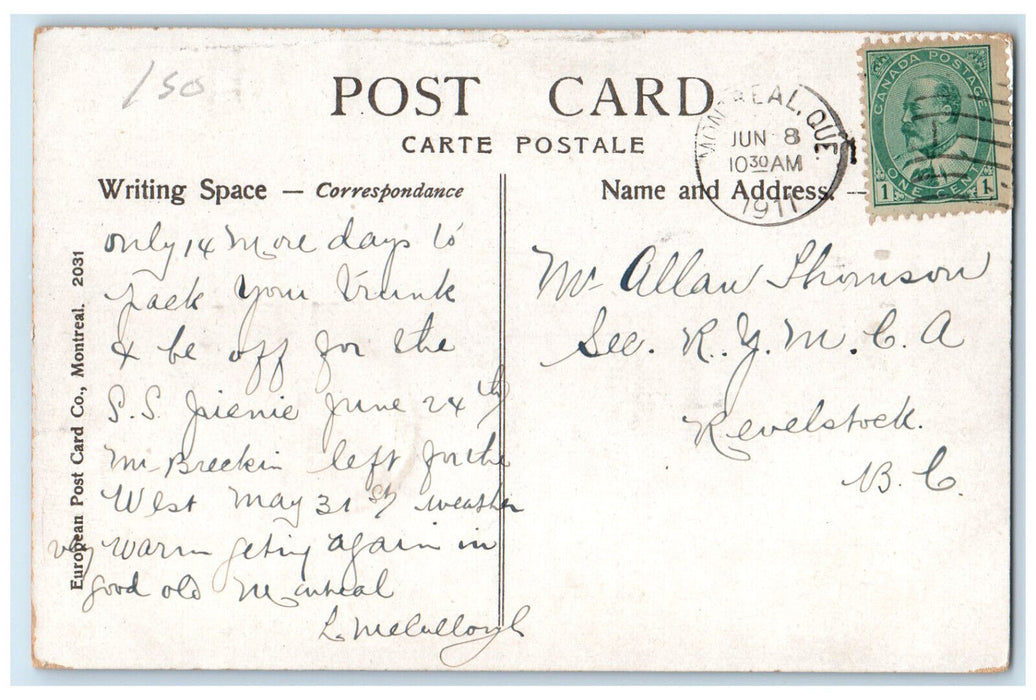 150
POST CARD
CARTE POSTALE
MONTREAL, QUE.
JUN 8
10 30 AM
1911
CANADA POSTAGE
ONE CENT
1 1
Writing Space — Correspondance
Name and Address. —
only 14 more days to
pack your trunk
& be off for the
S.S. picnic June 24th
Mr Breckin left for the
West May 31st weather
very warm geting again in
good old Montreal
L. McCullough
Mr Allan Thomson
Sec. R. Y. M. C. A
Revelstock.
B. C.
European Post Card Co., Montreal. 2031